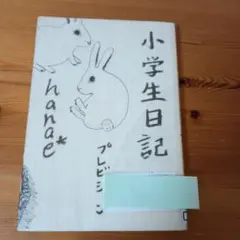 小学生日記
hanae*
プレビジョン